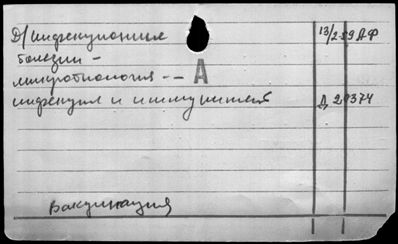 Д/инфекционные 13/2-59 АФ
болезни -
микробиология -- А
инфекция и иммунитет Д 29374
Вакцинация